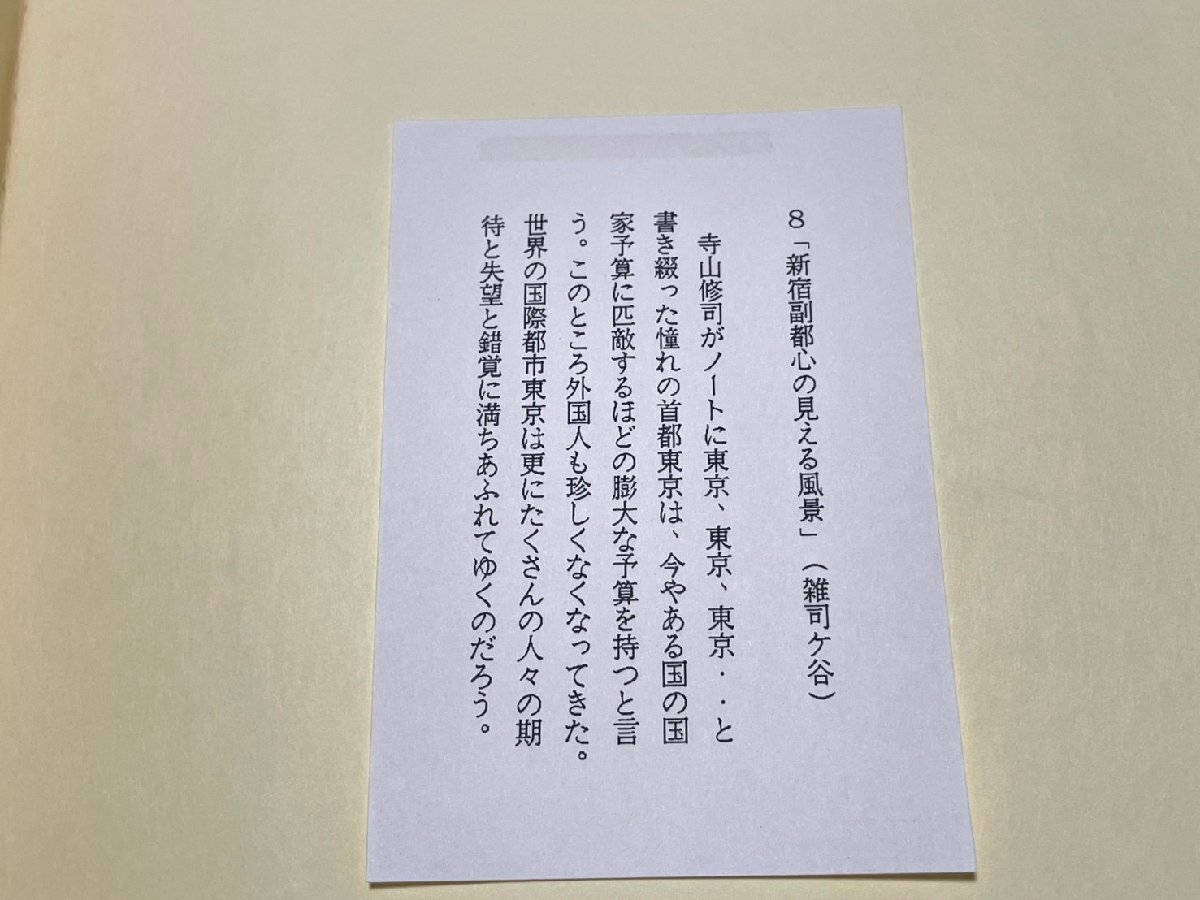 8「新宿副都心の見える風景」（雑司ケ谷）
寺山修司がノートに東京、東京、東京・・と
書き綴った憧れの首都東京は、今やある国の国
家予算に匹敵するほどの膨大な予算を持つと言
う。このところ外国人も珍しくなくなってきた。
世界の国際都市東京は更にたくさんの人々の期
待と失望と錯覚に満ちあふれてゆくのだろう。